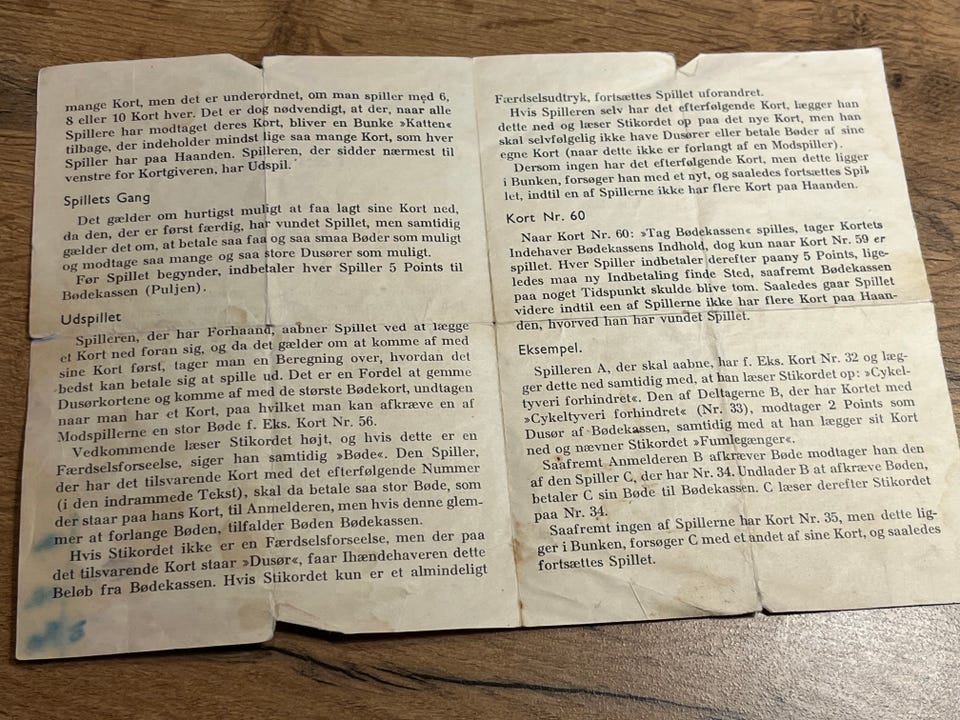 mange Kort, men det er underordnet, om man spiller med 6,
8 eller 10 Kort hver. Det er dog nødvendigt, at der, naar alle
Spillere har modtaget deres Kort, bliver en Bunke »Katten«
tilbage, der indeholder mindst lige saa mange Kort, som hver
Spiller har paa Haanden. Spilleren, der sidder nærmest til
venstre for Kortgiveren, har Udspil.
Spillets Gang
Det gælder om hurtigst muligt at faa lagt sine Kort ned,
da den, der er først færdig, har vundet Spillet, men samtidig
gælder det om, at betale saa faa og saa smaa Bøder som muligt
og modtage saa mange og saa store Dusører som muligt.
Før Spillet begynder, indbetaler hver Spiller 5 Points til
Bødekassen (Puljen).
Udspillet
Spilleren, der har Forhaand, aabner Spillet ved at lægge
et Kort ned foran sig, og da det gælder om at komme af med
sine Kort først, tager man en Beregning over, hvordan det
bedst kan betale sig at spille ud. Det er en Fordel at gemme
Dusørkortene og komme af med de største Bødekort, undtagen
naar man har et Kort, paa hvilket man kan afkræve en af
Modspillerne en stor Bøde f. Eks. Kort Nr. 56.
Vedkommende læser Stikordet højt, og hvis dette er en
Færdselsforseelse, siger han samtidig »Bøde«. Den Spiller,
der har det tilsvarende Kort med det efterfølgende Nummer
(i den indrammede Tekst), skal da betale saa stor Bøde, som
der staar paa hans Kort, til Anmelderen, men hvis denne glem-
mer at forlange Bøden, tilfalder Bøden Bødekassen.
Hvis Stikordet ikke er en Færdselsforseelse, men der paa
det tilsvarende Kort staar »Dusør«, faar Ihændehaveren dette
Beløb fra Bødekassen. Hvis Stikordet kun er et almindeligt
Færdselsudtryk, fortsættes Spillet uforandret.
Hvis Spilleren selv har det efterfølgende Kort, lægger han
dette ned og læser Stikordet op paa det nye Kort, men han
skal selvfølgelig ikke have Dusører eller betale Bøder af sine
egne Kort (naar dette ikke er forlangt af en Modspiller).
Dersom ingen har det efterfølgende Kort, men dette ligger
i Bunken, forsøger han med et nyt, og saaledes fortsættes Spil
let, indtil en af Spillerne ikke har flere Kort paa Haanden.
Kort Nr. 60
Naar Kort Nr. 60: »Tag Bødekassen« spilles, tager Kortets
Indehaver Bødekassens Indhold, dog kun naar Kort Nr. 59 er
spillet. Hver Spiller indbetaler derefter paany 5 Points, lige-
ledes maa ny Indbetaling finde Sted, saafremt Bødekassen
paa noget Tidspunkt skulde blive tom. Saaledes gaar Spillet
videre indtil een af Spillerne ikke har flere Kort paa Haan-
den, hvorved han har vundet Spillet.
Eksempel.
Spilleren A, der skal aabne, har f. Eks. Kort Nr. 32 og læg-
ger dette ned samtidig med, at han læser Stikordet op: »Cykel-
tyveri forhindret«. Den af Deltagerne B, der har Kortet med
»Cykeltyveri forhindret« (Nr. 33), modtager 2 Points som
Dusør af Bødekassen, samtidig med at han lægger sit Kort
ned og nævner Stikordet »Fumlegænger«.
Saafremt Anmelderen B afkræver Bøde modtager han den
af den Spiller C, der har Nr. 34. Undlader B at afkræve Bøden,
betaler C sin Bøde til Bødekassen. C læser derefter Stikordet
paa Nr. 34.
Saafremt ingen af Spillerne har Kort Nr. 35, men dette lig-
ger i Bunken, forsøger C med et andet af sine Kort, og saaledes
fortsættes Spillet.